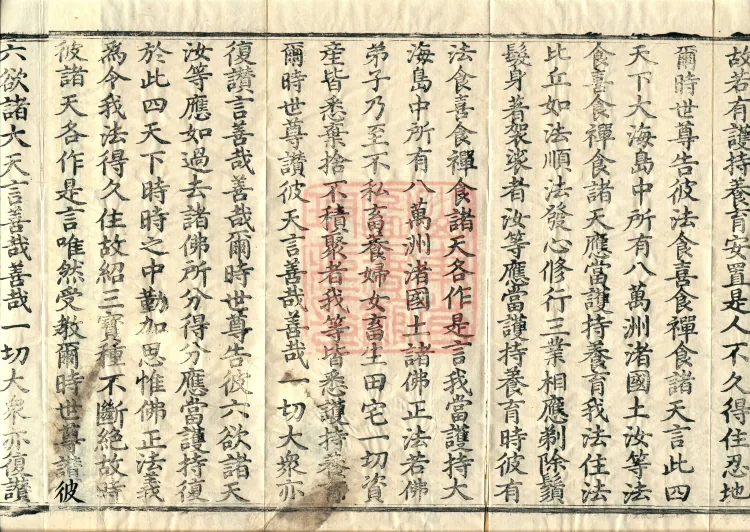 故若有護持養育安置是人不久得住忍地
爾時世尊告彼法食喜食禪食諸天言此四
天下大海島中所有八萬洲渚國土汝等法
食喜食禪食諸天應當護持養育我法住法
比丘如法順法發心修行三業相應剃除鬚
髮身著袈裟者汝等應當護持養育時彼有
法食喜食禪食諸天各作是言我當護持大
海島中所有八萬洲渚國土諸佛正法若佛
弟子乃至不私畜養婦女畜生田宅一切資
産皆悉棄捨不積聚者我等皆悉護持養育
爾時世尊讃彼天言善哉善哉一切大衆亦
復讃言善哉善哉爾時世尊告彼六欲諸天
汝等應如過去諸佛所分得分應當護持復
於此四天下時時之中勤加思惟佛正法義
為令我法得久住故紹三寶種不斷絶故時
彼諸天各作是言唯然受教爾時世尊讃彼
六欲諸大天言善哉善哉一切大衆亦復讃